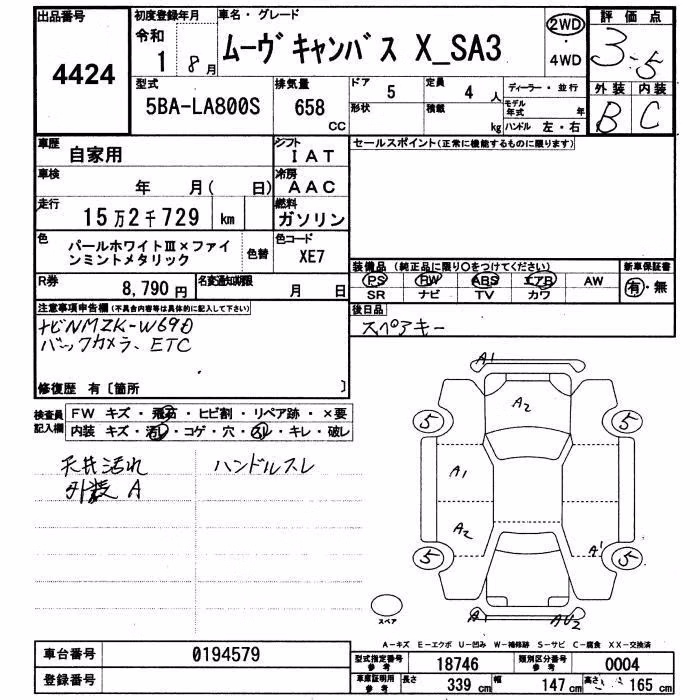 出品番号
4424
初度登録年月
令和
1 8月
車名・グレード
ムーヴキャンバス X_SA3
2WD
・
4WD
評価点
3.5
外装 内装
B C
型式
5BA-LA800S
排気量
658
CC
ドア
5
定員
4 人
形状
積載
kg
ディーラー・並行
モデル年式 年
ハンドル 左・右
車歴
自家用
シフト
IAT
セールスポイント(正常に機能するものに限ります)
車検
年 月( 日)
冷房
AAC
走行
15万2千729 km
燃料
ガソリン
色
パールホワイトⅢ×ファイ
ンミントメタリック
色替
色コード
XE7
装備品 (純正品に限り○をつけてください)
PS PW ABS エアB AW
SR ナビ TV カワ
新車保証書
有・無
R券
8,790円
名変通知期限
月 日
後日品
スペアキー
注意事項申告欄(不具合内容等は具体的に記入して下さい)
ナビNMZK-W69D
バックカメラ、ETC
修復歴 有〔箇所 〕
検査員
記入欄
FW キズ・飛石・ヒビ割・リペア跡・×要
内装 キズ・汚レ・コゲ・穴・スレ・キレ・破レ
天井汚れ
外装 A
ハンドルスレ
A1
A2
5 5
A1
A2
A1
5 5
A1
AU2
スペア
A-キズ E-エクボ U-凹み W-補修跡 S-サビ C-腐食 XX-交換済
車台番号
0194579
登録番号
型式指定番号
参考
18746
類別区分番号
参考
0004
車庫証明用
参考
長さ 339 cm
幅 147 cm
高さ 165 cm